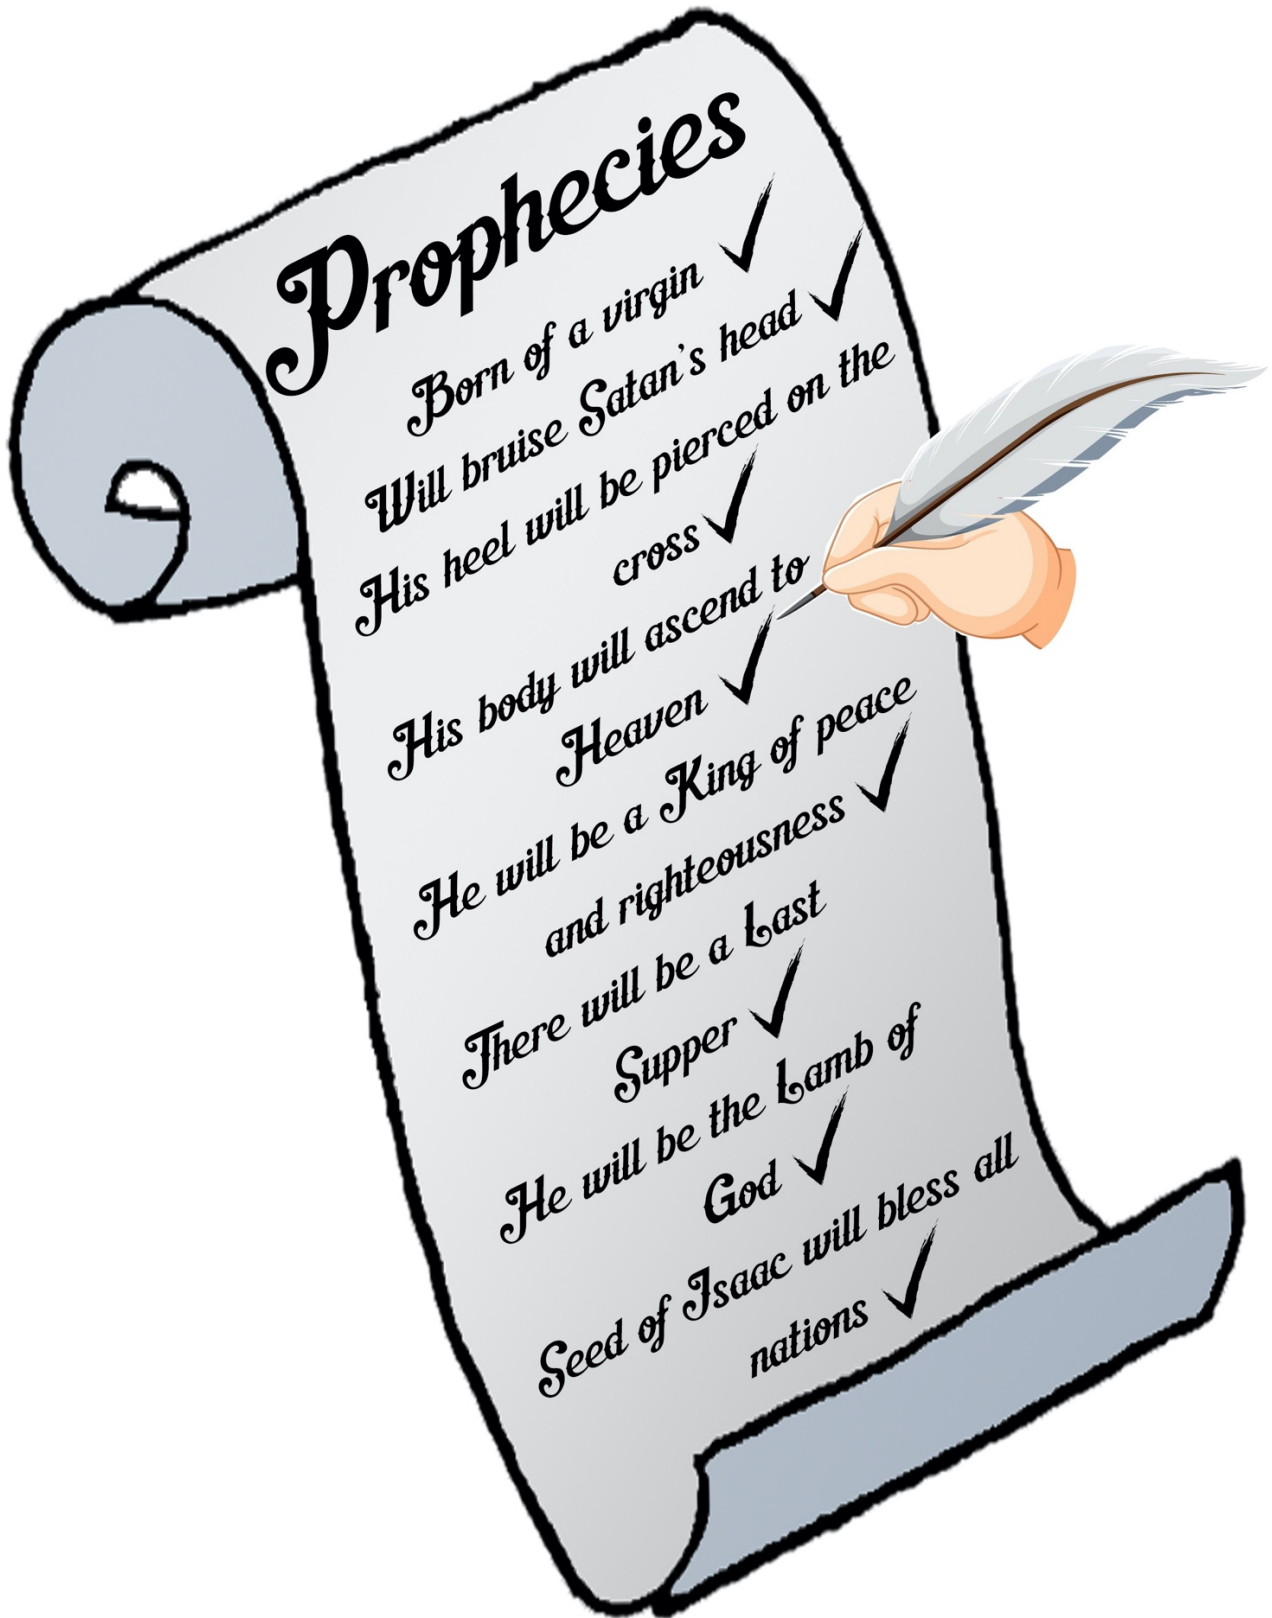 Prophecies
Born of a virgin ✓
Will bruise Satan's head ✓
His heel will be pierced on the
cross ✓
His body will ascend to
Heaven ✓
He will be a King of peace
and righteousness ✓
There will be a Last
Supper ✓
He will be the Lamb of
God ✓
Seed of Isaac will bless all
nations ✓